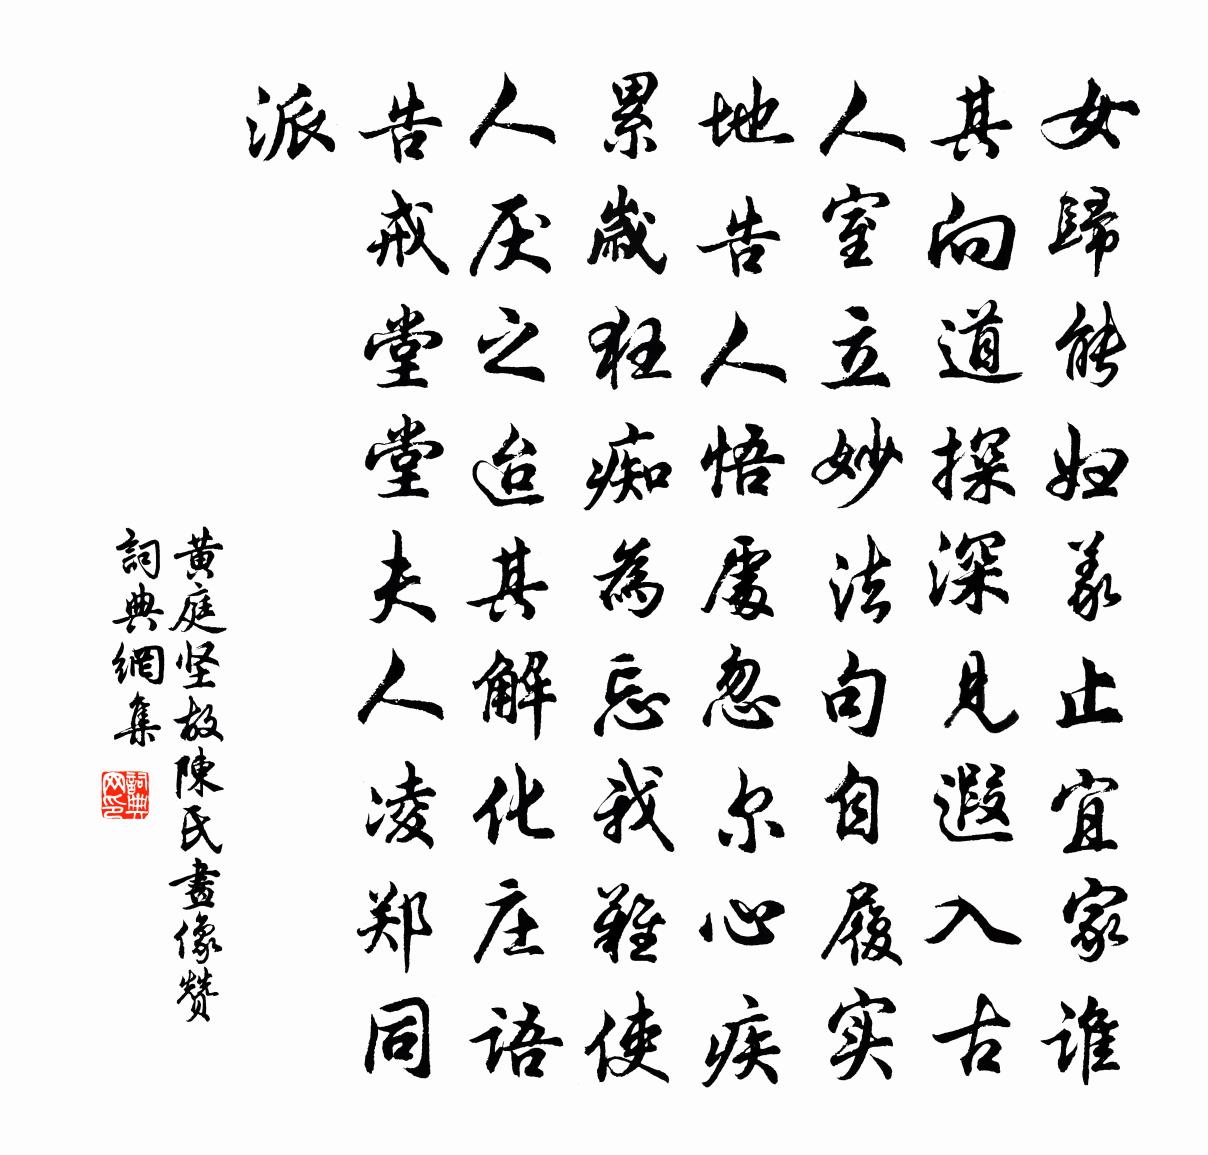 女歸能妇义止宜家谁
其向道探深見遐入古
人室立妙法句自履实
地告人悟處忽尔心疾
累歲狂痴為忘我難使
人厌之迨其解化庄語
告戒堂堂夫人凌郑同
派
黄庭坚故陳氏畫像赞
詞典網集
詞典网印